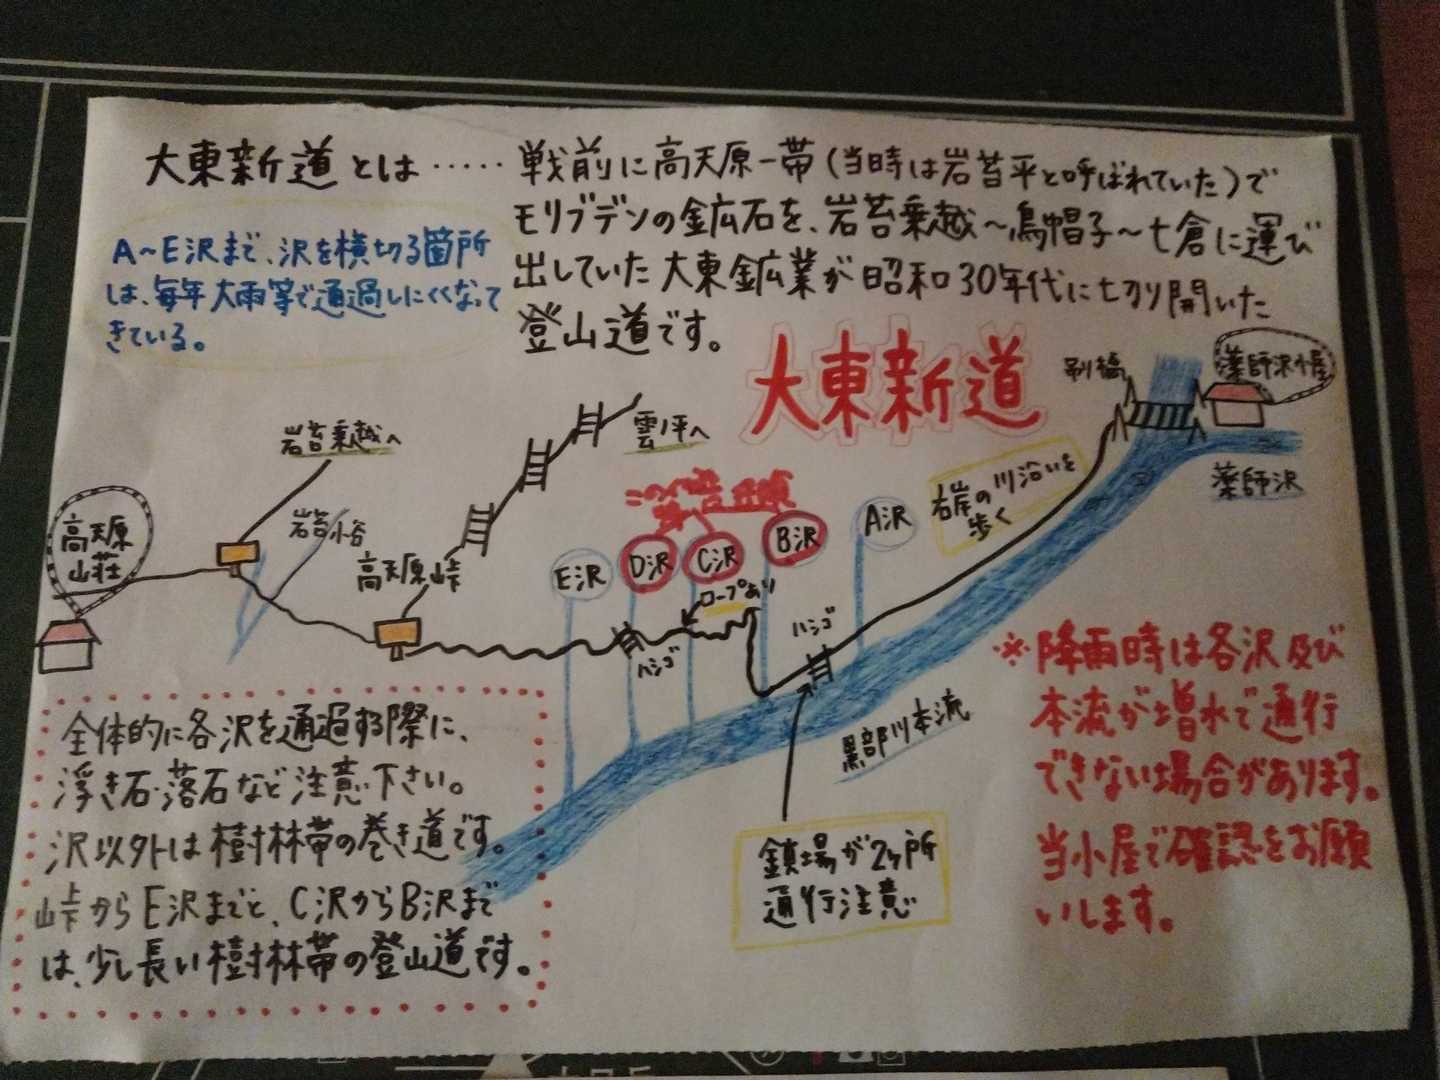 大東新道とは……戦前に高天原一帯(当時は岩苔平と呼ばれていた)で
モリブデンの鉱石を、岩苔乗越～烏帽子～七倉に運び
出していた大東鉱業が昭和30年代に切り開いた
登山道です。
A～E沢まで、沢を横切る箇所
は、毎年大雨等で通過しにくくなって
きている。
大東新道
吊橋
薬師沢小屋
薬師沢
岩苔乗越へ
雲ノ平へ
岩苔小谷
高天原
山荘
高天原峠
E沢
D沢
C沢
B沢
A沢
右岸の川沿いを
歩く
ロープあり
ハシゴ
ハシゴ
黒部川本流
鎖場が2ヶ所
通行注意
全体的に各沢を通過する際に、
浮き石・落石など注意下さい。
沢以外は樹林帯の巻き道です。
峠からE沢までと、C沢からB沢まで
は、少し長い樹林帯の登山道です。
※降雨時は各沢及び
本流が増水で通行
できない場合があります。
当小屋で確認をお願
いします。